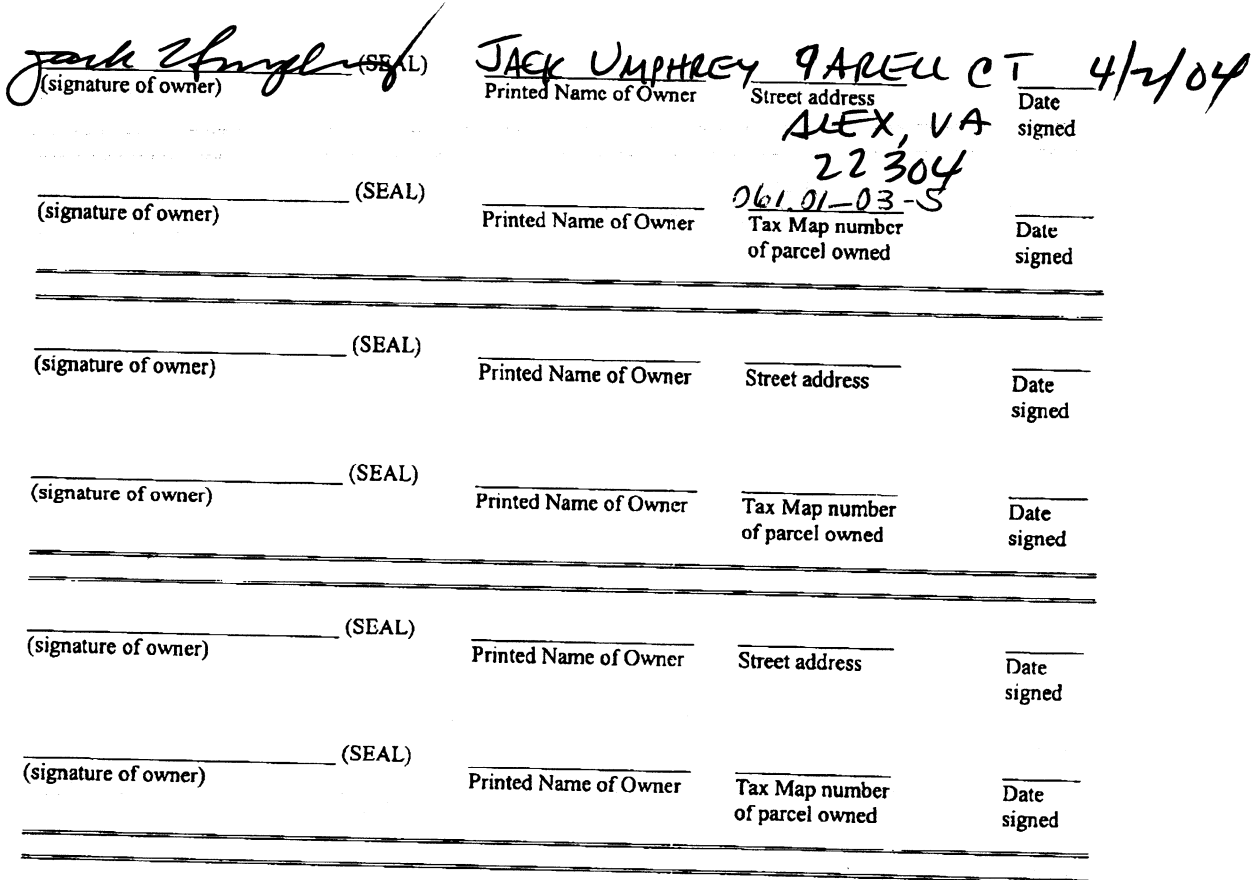 Jack Umphrey (SEAL) JACK UMPHREY 9 ARELL CT 4/2/04
(signature of owner) Printed Name of Owner Street address Date signed
ALEX, VA
22304
(SEAL) 061.01-03-5
(signature of owner) Printed Name of Owner Tax Map number of parcel owned Date signed
(SEAL)
(signature of owner) Printed Name of Owner Street address Date signed
(SEAL)
(signature of owner) Printed Name of Owner Tax Map number of parcel owned Date signed
(SEAL)
(signature of owner) Printed Name of Owner Street address Date signed
(SEAL)
(signature of owner) Printed Name of Owner Tax Map number of parcel owned Date signed